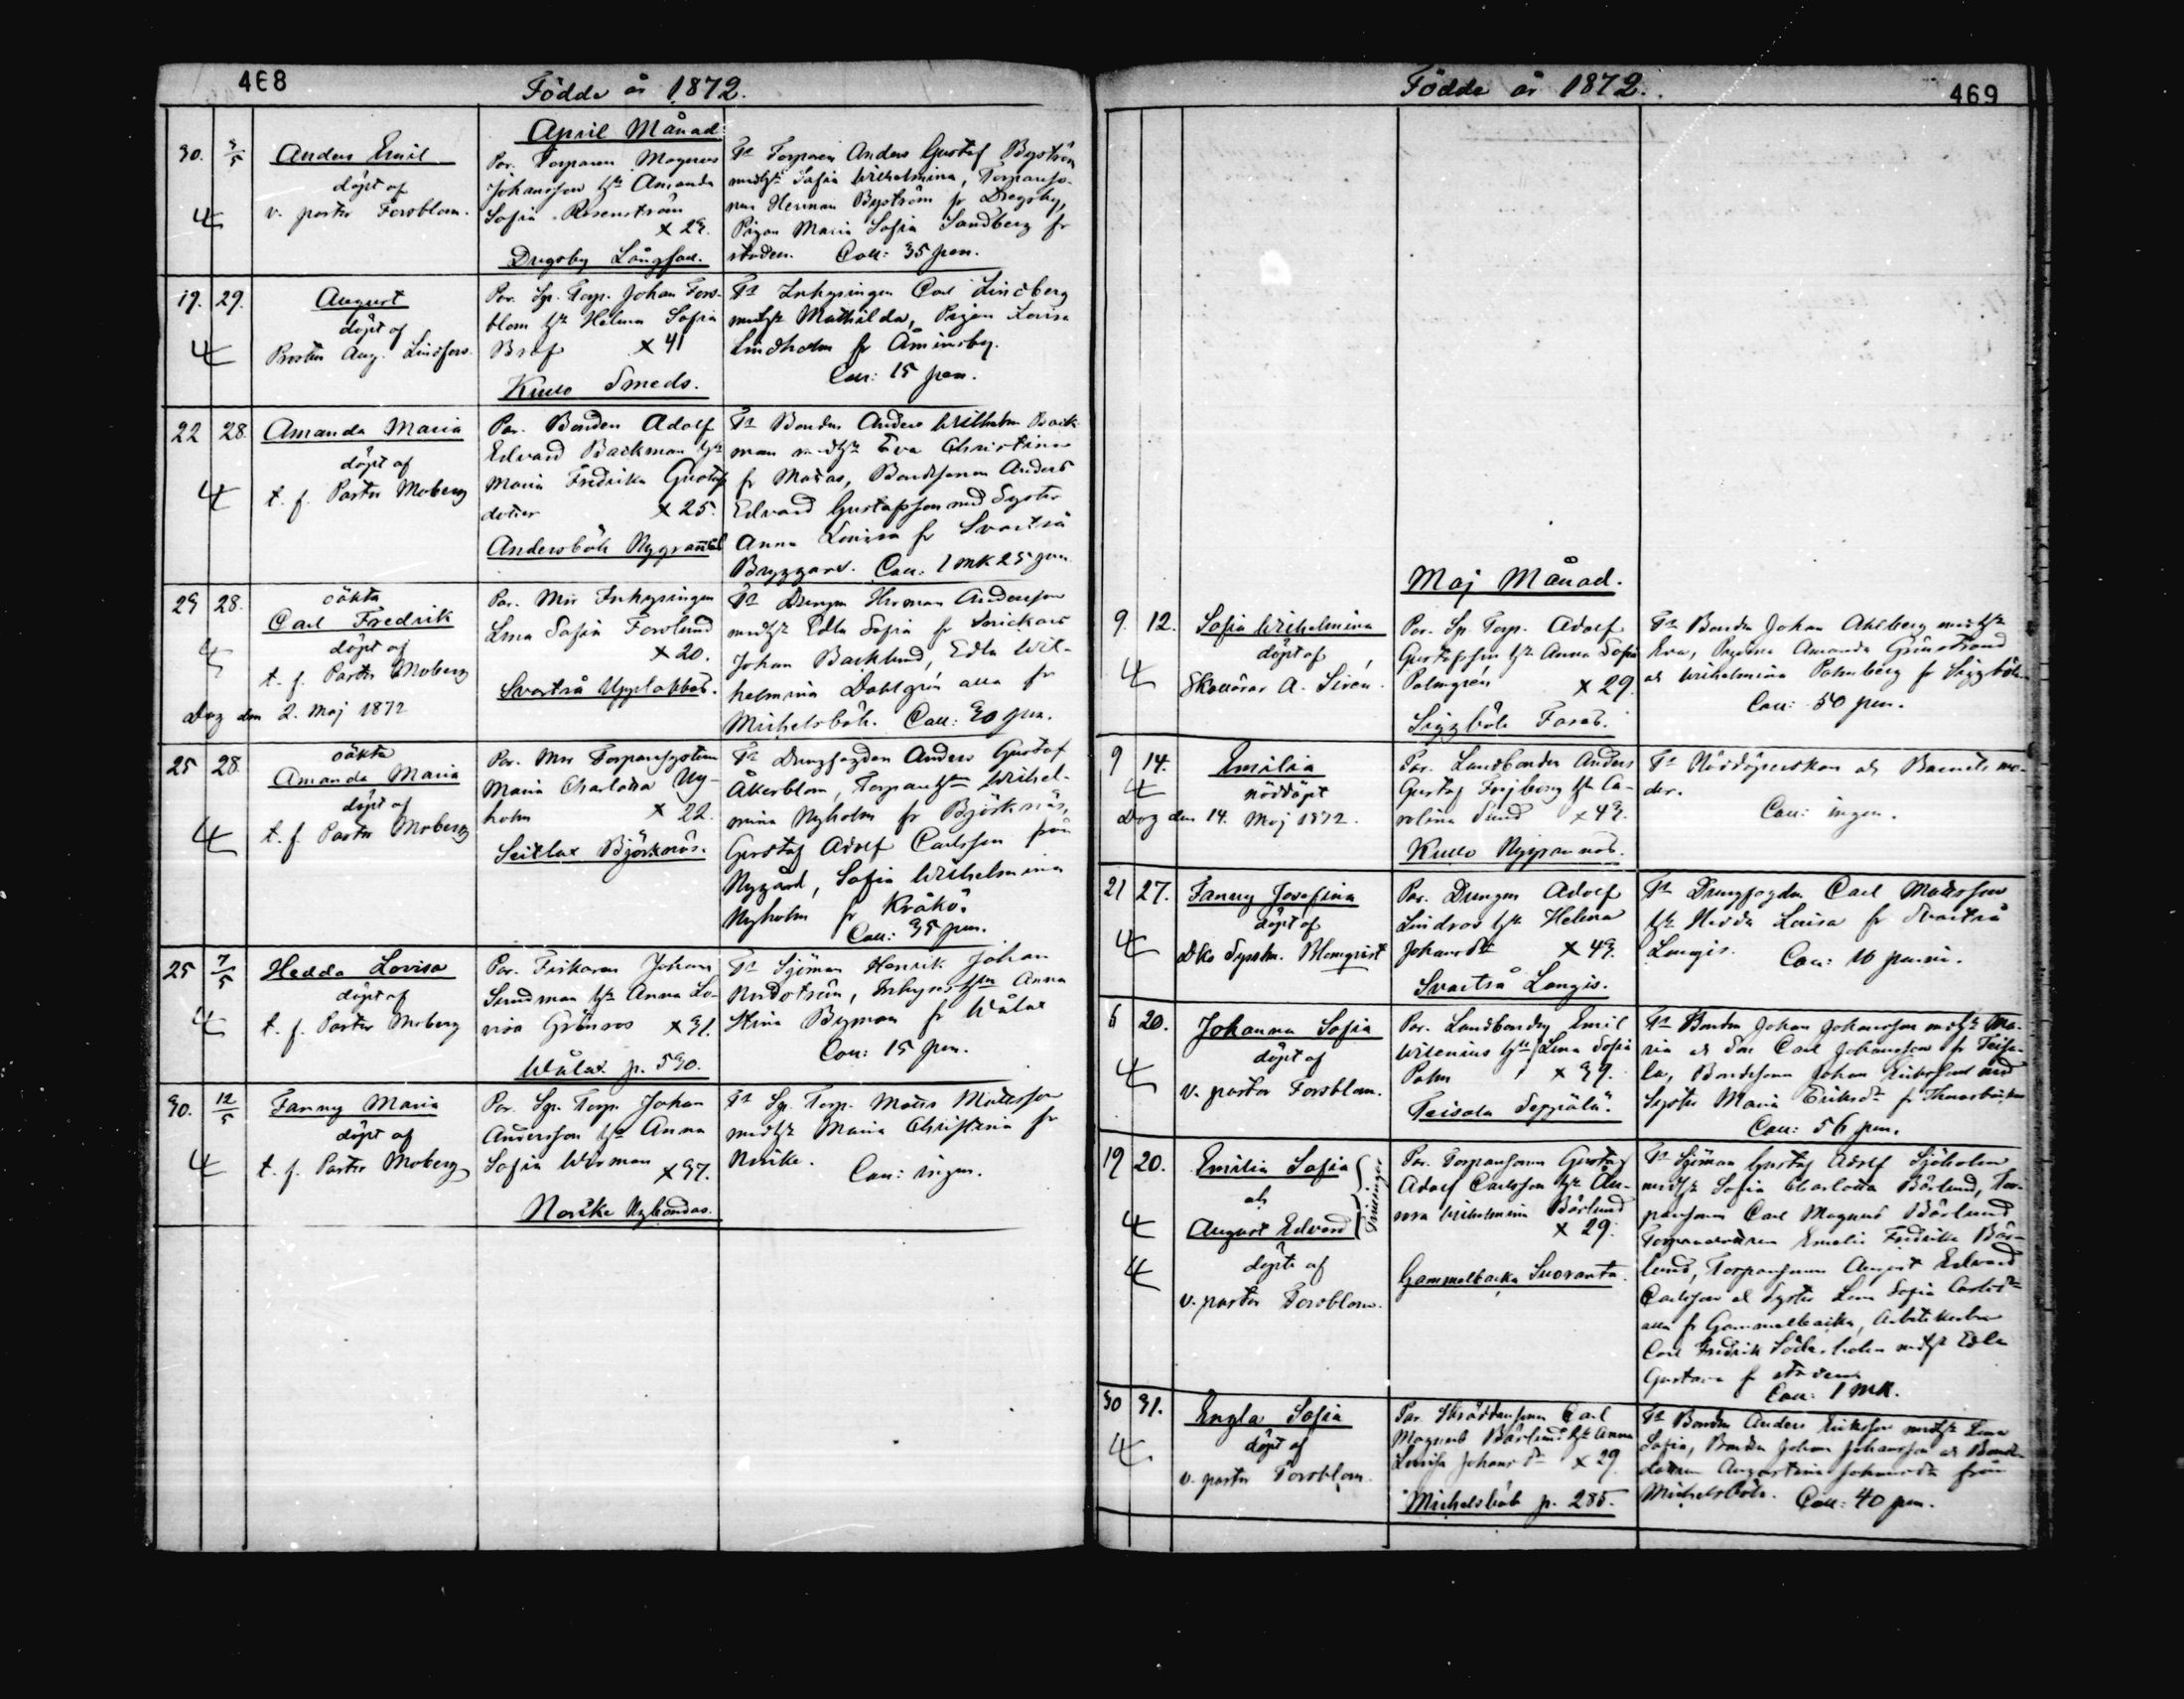 468
Födde år 1872.
April Månad
30. 3/5 Anders Emil
döpt af
v. pastor Forsblom.
Par. Torparen Magnus
Johansson h. Amanda
Sofia Rosenström
x 29.
Drägsby Långfall.
Torparen Anders Gustaf Byström
med h. Sofia Wilhelmina, Torpareso-
nen Herman Byström fr Dregsby,
Pigan Maria Sofia Sandberg fr
staden. Coll: 35 pen.
19. 29. August
döpt af
Prosten Aug. Lindfors.
Par. Sp. Torp. Johan Fors-
blom h. Helena Sofia
x 41
Kullo Smeds.
Inhysingen Carl Lindberg
med h. Mathilda, Pigan Lovisa
Lindholm fr Åminsby.
Coll: 15 pen.
22 28. Amanda Maria
döpt af
t. f. Pastor Moberg
Par. Bonden Adolf
Edvard Backman h.
Maria Fredrika Gustafs
dotter x 25.
Andersböle Nygrannas
Bonden Anders Wilhelm Back-
man med h. Eva Christina
fr Maras, Bondesonen Anders
Edvard Gustafsson med Syster
Anna Lovisa fr Svartså
Bryggars. Coll: 1 mk 25 pen.
29 28. oäkta
Carl Fredrik
döpt af
t. f. Pastor Moberg
Dog den 2. Maj 1872
Par. Mor Inhysingen
Lena Sofia Forslund
x 20.
Svartså Upplakkas.
Drengen Herman Andersson
med h. Edla Sofia fr Snickars
Johan Backlund, Edla Wil-
helmina Dahlgrén alla fr
Michelsböle. Coll: 20 pen.
25 28. oäkta
Amanda Maria
döpt af
t. f. Pastor Moberg
Par. Mor Torparesystern
Maria Charlotta Ny-
holm x 22.
Seitlax Björknäs.
Drengfogden Anders Gustaf
Åkerblom, Torpareh. Wilhel-
mina Nyholm fr Björknäs,
Gustaf Adolf Carlsson från
Nygård, Sofia Wilhelmina
Nyholm fr Kråkö.
Coll: 35 pen.
25 7/5 Hedda Lovisa
döpt af
t. f. Pastor Moberg
Par. Fiskaren Johan
Sundman h. Anna Lo-
visa Grönroos x 31.
Wålax p. 530.
Sjöman Henrik Johan
Nordström, Anna
Stina Byman fr Wålax
Coll: 15 pen.
30. 12/5 Fanny Maria
döpt af
t. f. Pastor Moberg
Par. Sp. Torp. Johan
Andersson h. Anna
Sofia Wirman x 37.
Norike Nybondas.
Sp. Torp. Matts Mattsson
med h. Maria Christina fr
Norike. Coll: ingen.
Födde år 1872.
469
Maj Månad.
9. 12. Sofia Wilhelmina
döpt af
Skollärar A. Sirén.
Par. Sp. Torp. Adolf
Gustafsson h. Anna Sofia
Palmgren x 29.
Siggböle Farås.
Bonden Johan Ahlberg med h.
Eva, Pigorna Amanda Grönstrand
och Wilhelmina Palmberg fr Siggböle.
Coll: 50 pen.
9 14. Emilia
nöddöpt
Dog den 14. Maj 1872.
Par. Landbonden Anders
Gustaf Frijberg h. Ca-
rolina Sund x 43.
Kullo Nyspannas.
Nöddöperskan och Barnets mo-
der.
Coll: ingen.
21 27. Fanny Josefina
döpt af
Dko Syssm. Blomqvist
Par. Drengen Adolf
Lindros h. Helena
Johansdr x 43.
Svartså Longis.
Drengfogden Carl Mattsson
h. Hedda Lovisa fr Svartså
Longis. Coll: 10 penni.
6 20. Johanna Sofia
döpt af
v. pastor Forsblom.
Par. Landbonden Emil
Wilenius h. Lena Sofia
Palm x 39.
Teisala Seppälä.
Bonden Johan Johansson med h. Ma-
ria och Son Carl Johansson fr Teisa-
la, Bondesonen Johan Eriksson med
Syster Maria Eriksdr fr
Coll: 56 pen.
19 20. Emilia Sofia
och
August Edvard
Tvillingar
döpte af
v. pastor Forsblom.
Par. Torparesonen Gustaf
Adolf Carlsson h. An-
rora Wilhelmina Bärlund
x 29.
Gammelbacka Suoranta.
Sjöman Gustaf Adolf Sjöholm
med h. Sofia Charlotta Bärlund, Tor-
paresonen Carl Magnus Bärlund
Torparedottren Emelie Fredrika Bär-
lund, Torparesonen August Edvard
Carlsson och Syster Lena Sofia Carlsdr
alla fr Gammelbacka, Arbetskarlen
Carl Fredrik Söderholm med h. Edla
Gustava fr staden
Coll: 1 mk.
30 31. Engla Sofia
döpt af
v. pastor Forsblom.
Par. Skräddaresonen Carl
Magnus Bärlund h. Anna
Lovisa Johansdr x 29
Michelsböle p. 285.
Bonden Anders Eriksson med h. Lena
Sofia, Bonden Johan Johansson och Bonde-
dottren Augustina Johansdr från
Michelsböle. Coll: 40 pen.